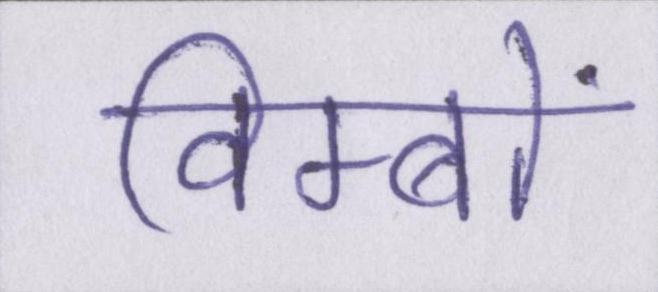 विम्बों